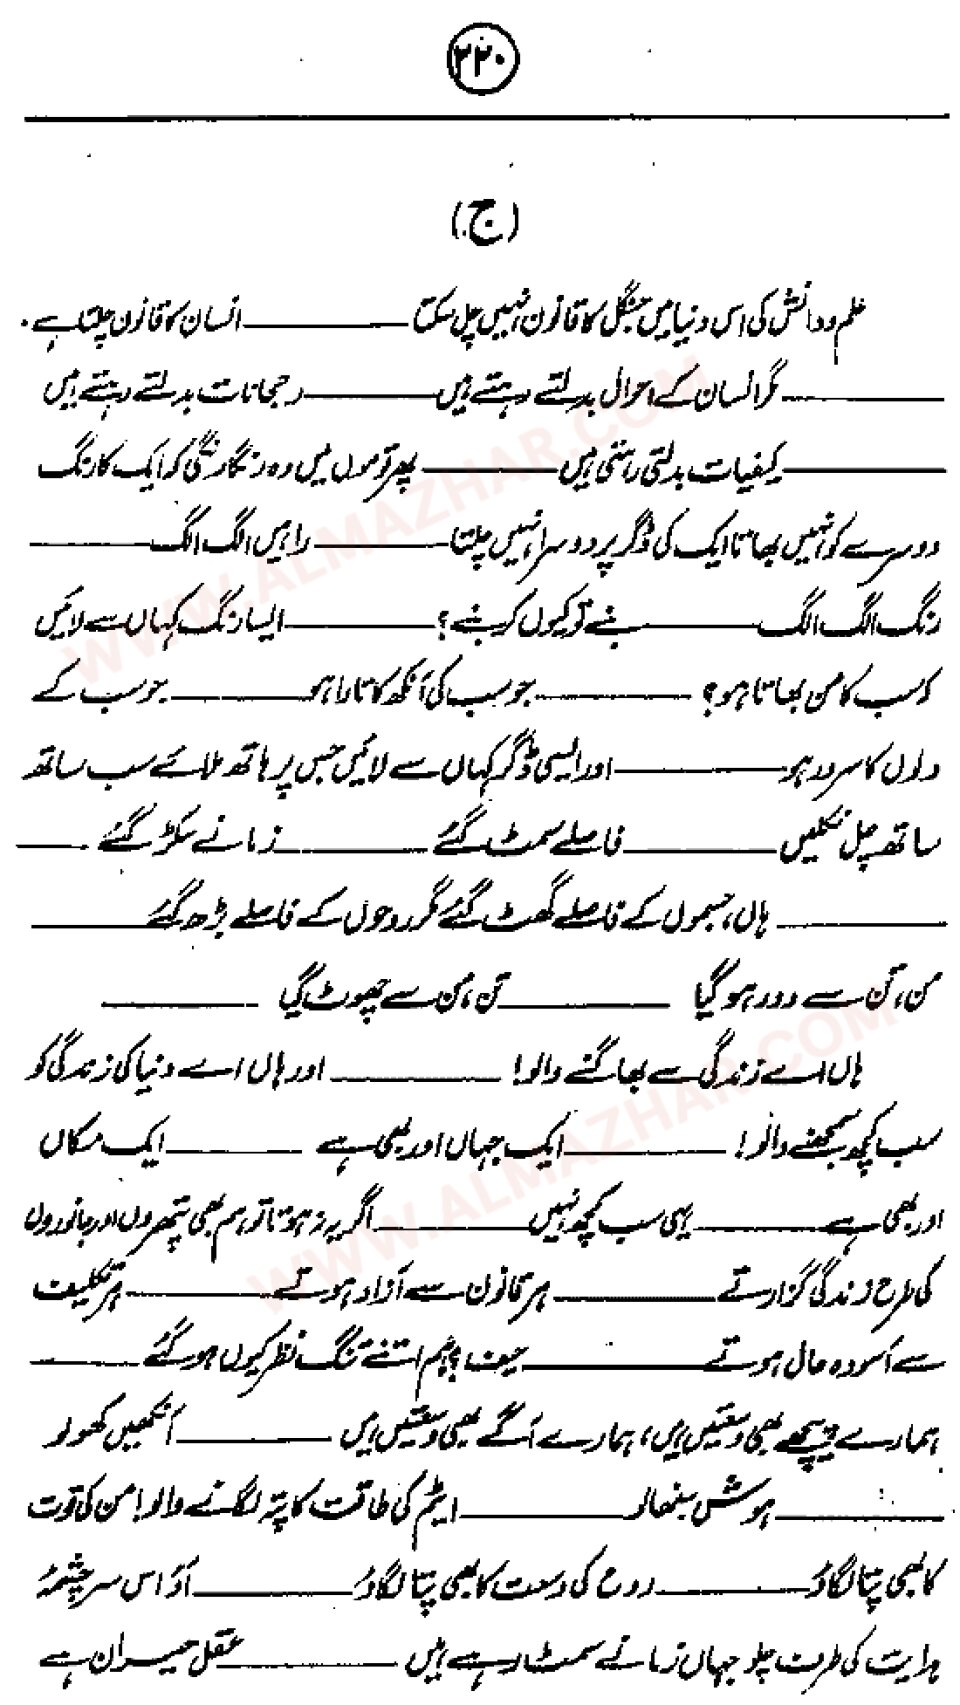 ۲۲۰
(ج)
علم و دانش کی اس دنیا میں جنگل کا قانون نہیں چل سکتا ——— انسان کا قانون چلتا ہے۔
——— مگر انسان کے احوال بدلتے رہتے ہیں ——— رجحانات بدلتے رہتے ہیں
——— کیفیات بدلتی رہتی ہیں ——— پھر قوموں میں وہ رنگارنگی کہ ایک کا رنگ
دوسرے کو نہیں بھاتا ایک کی ڈگر پر دوسرا نہیں چلتا ——— راہیں الگ الگ ———
رنگ الگ الگ ——— بنے تو کیوں کر بنے؟ ——— ایسا رنگ کہاں سے لائیں
کہ سب کا من بھاتا ہو؟ ——— جو سب کی آنکھ کا تارا ہو ——— جو سب کے
دلوں کا سرور ہو ——— اور ایسی ڈگر کہاں سے لائیں جس پر ہاتھ ملائے سب ساتھ
ساتھ چل نکلیں ——— فاصلے سمٹ گئے ——— زمانے سکڑ گئے ———
——— ہاں، جسموں کے فاصلے گھٹ گئے مگر روحوں کے فاصلے بڑھ گئے ———
من، تن سے دور ہو گیا ——— تن، من سے چھوٹ گیا ———
ہاں اے زندگی سے بھاگنے والو! ——— اور ہاں اے دنیا کی زندگی کو
سب کچھ سمجھنے والو! ——— ایک جہاں اور بھی ہے ——— ایک مکاں
اور بھی ہے ——— یہی سب کچھ نہیں ——— اگر یہ نہ ہوتا تو ہم بھی پتھروں اور جانوروں
کی طرح زندگی گزارتے ——— ہر قانون سے آزاد ہوتے ——— ہر تکلیف
سے آسودہ حال ہوتے ——— حیف! ہم اتنے تنگ نظر کیوں ہو گئے ———
ہمارے پیچھے بھی وسعتیں ہیں، ہمارے آگے بھی وسعتیں ہیں ——— آنکھیں کھولو
——— ہوش سنبھالو ——— ایٹم کی طاقت کا پتہ لگانے والو! من کی قوت
کا بھی پتا لگاؤ ——— روح کی وسعت کا بھی پتا لگاؤ ——— آؤ اس سرچشمۂ
ہدایت کی طرف چلو جہاں زمانے سمٹ رہے ہیں ——— عقل حیران ہے
WWW.ALMAZHAR.COM
WWW.ALMAZHAR.COM